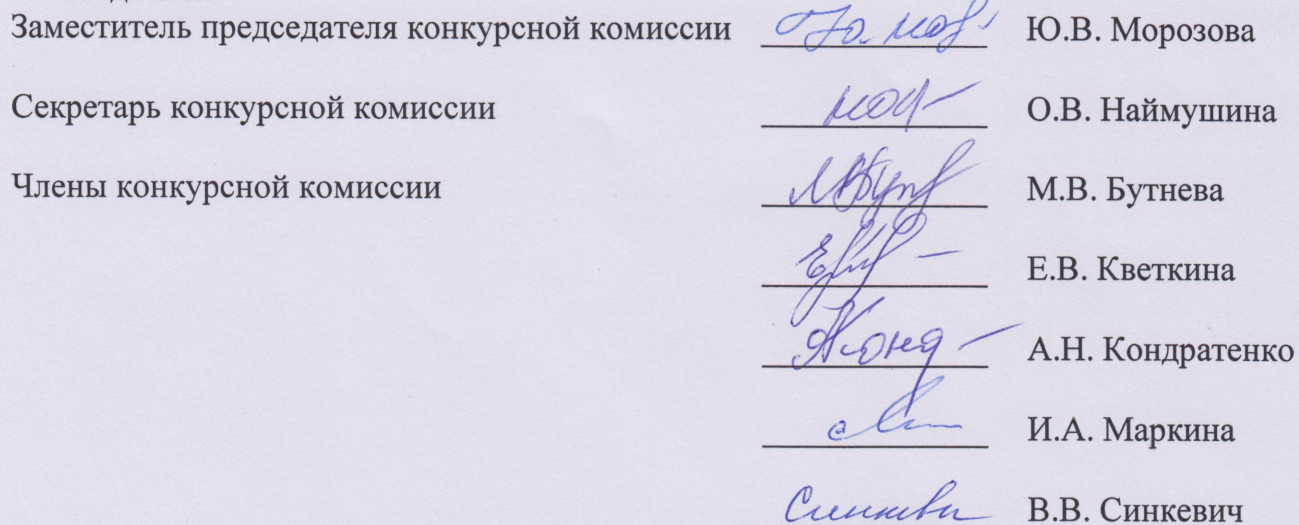 Заместитель председателя конкурсной комиссии Ю.В. Морозова
Секретарь конкурсной комиссии О.В. Наймушина
Члены конкурсной комиссии М.В. Бутнева
Е.В. Кветкина
А.Н. Кондратенко
И.А. Маркина
В.В. Синкевич